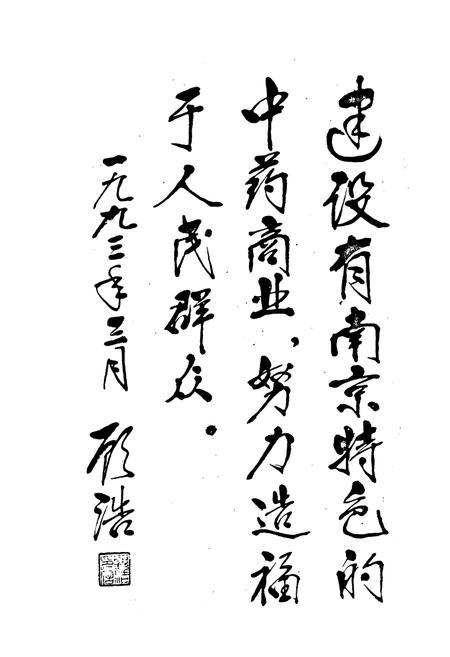 建设有南京特色的
中药商业、努力造福
于人民群众。
一九九三年三月
顾浩